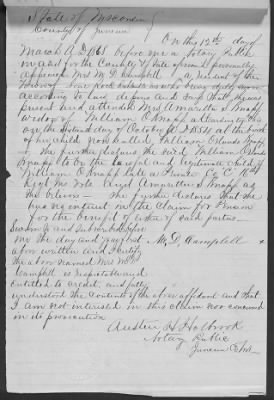 State of Wisconsin
County of Juneau
On this 12th day of
March A.D. 1868 before me a Notary Public
in and for the County & State aforesaid personally
appeared Mrs M. D. Campbell a resident of the
who being duly sworn
according to law depose and says that she was
present and attended Mrs Amaretta Knapp
widow of William O Knapp at
on the Second day of October A.D. 1854 at the birth
of her child now called William Knapp
She further declares the said William
Knapp to be the lawful and legitimate child of
William O Knapp late a Private Co "C" 16th
Regt Wis Vols and Amaretta Knapp
the widow She further declares that she
has no interest in the Claim for Pension
for the benefit of either of said parties.
Sworn to and Subscribed before
me the day and year first M. D. Campbell
above written and I certify
the above named Mrs M. D.
Campbell is respectable and
entitled to credit, and fully
understood the Contents of the above affidavit and that
I am not interested in this claim nor concerned
in its prosecution
Austin H Holbrook
Notary Public
Juneau Co Wis